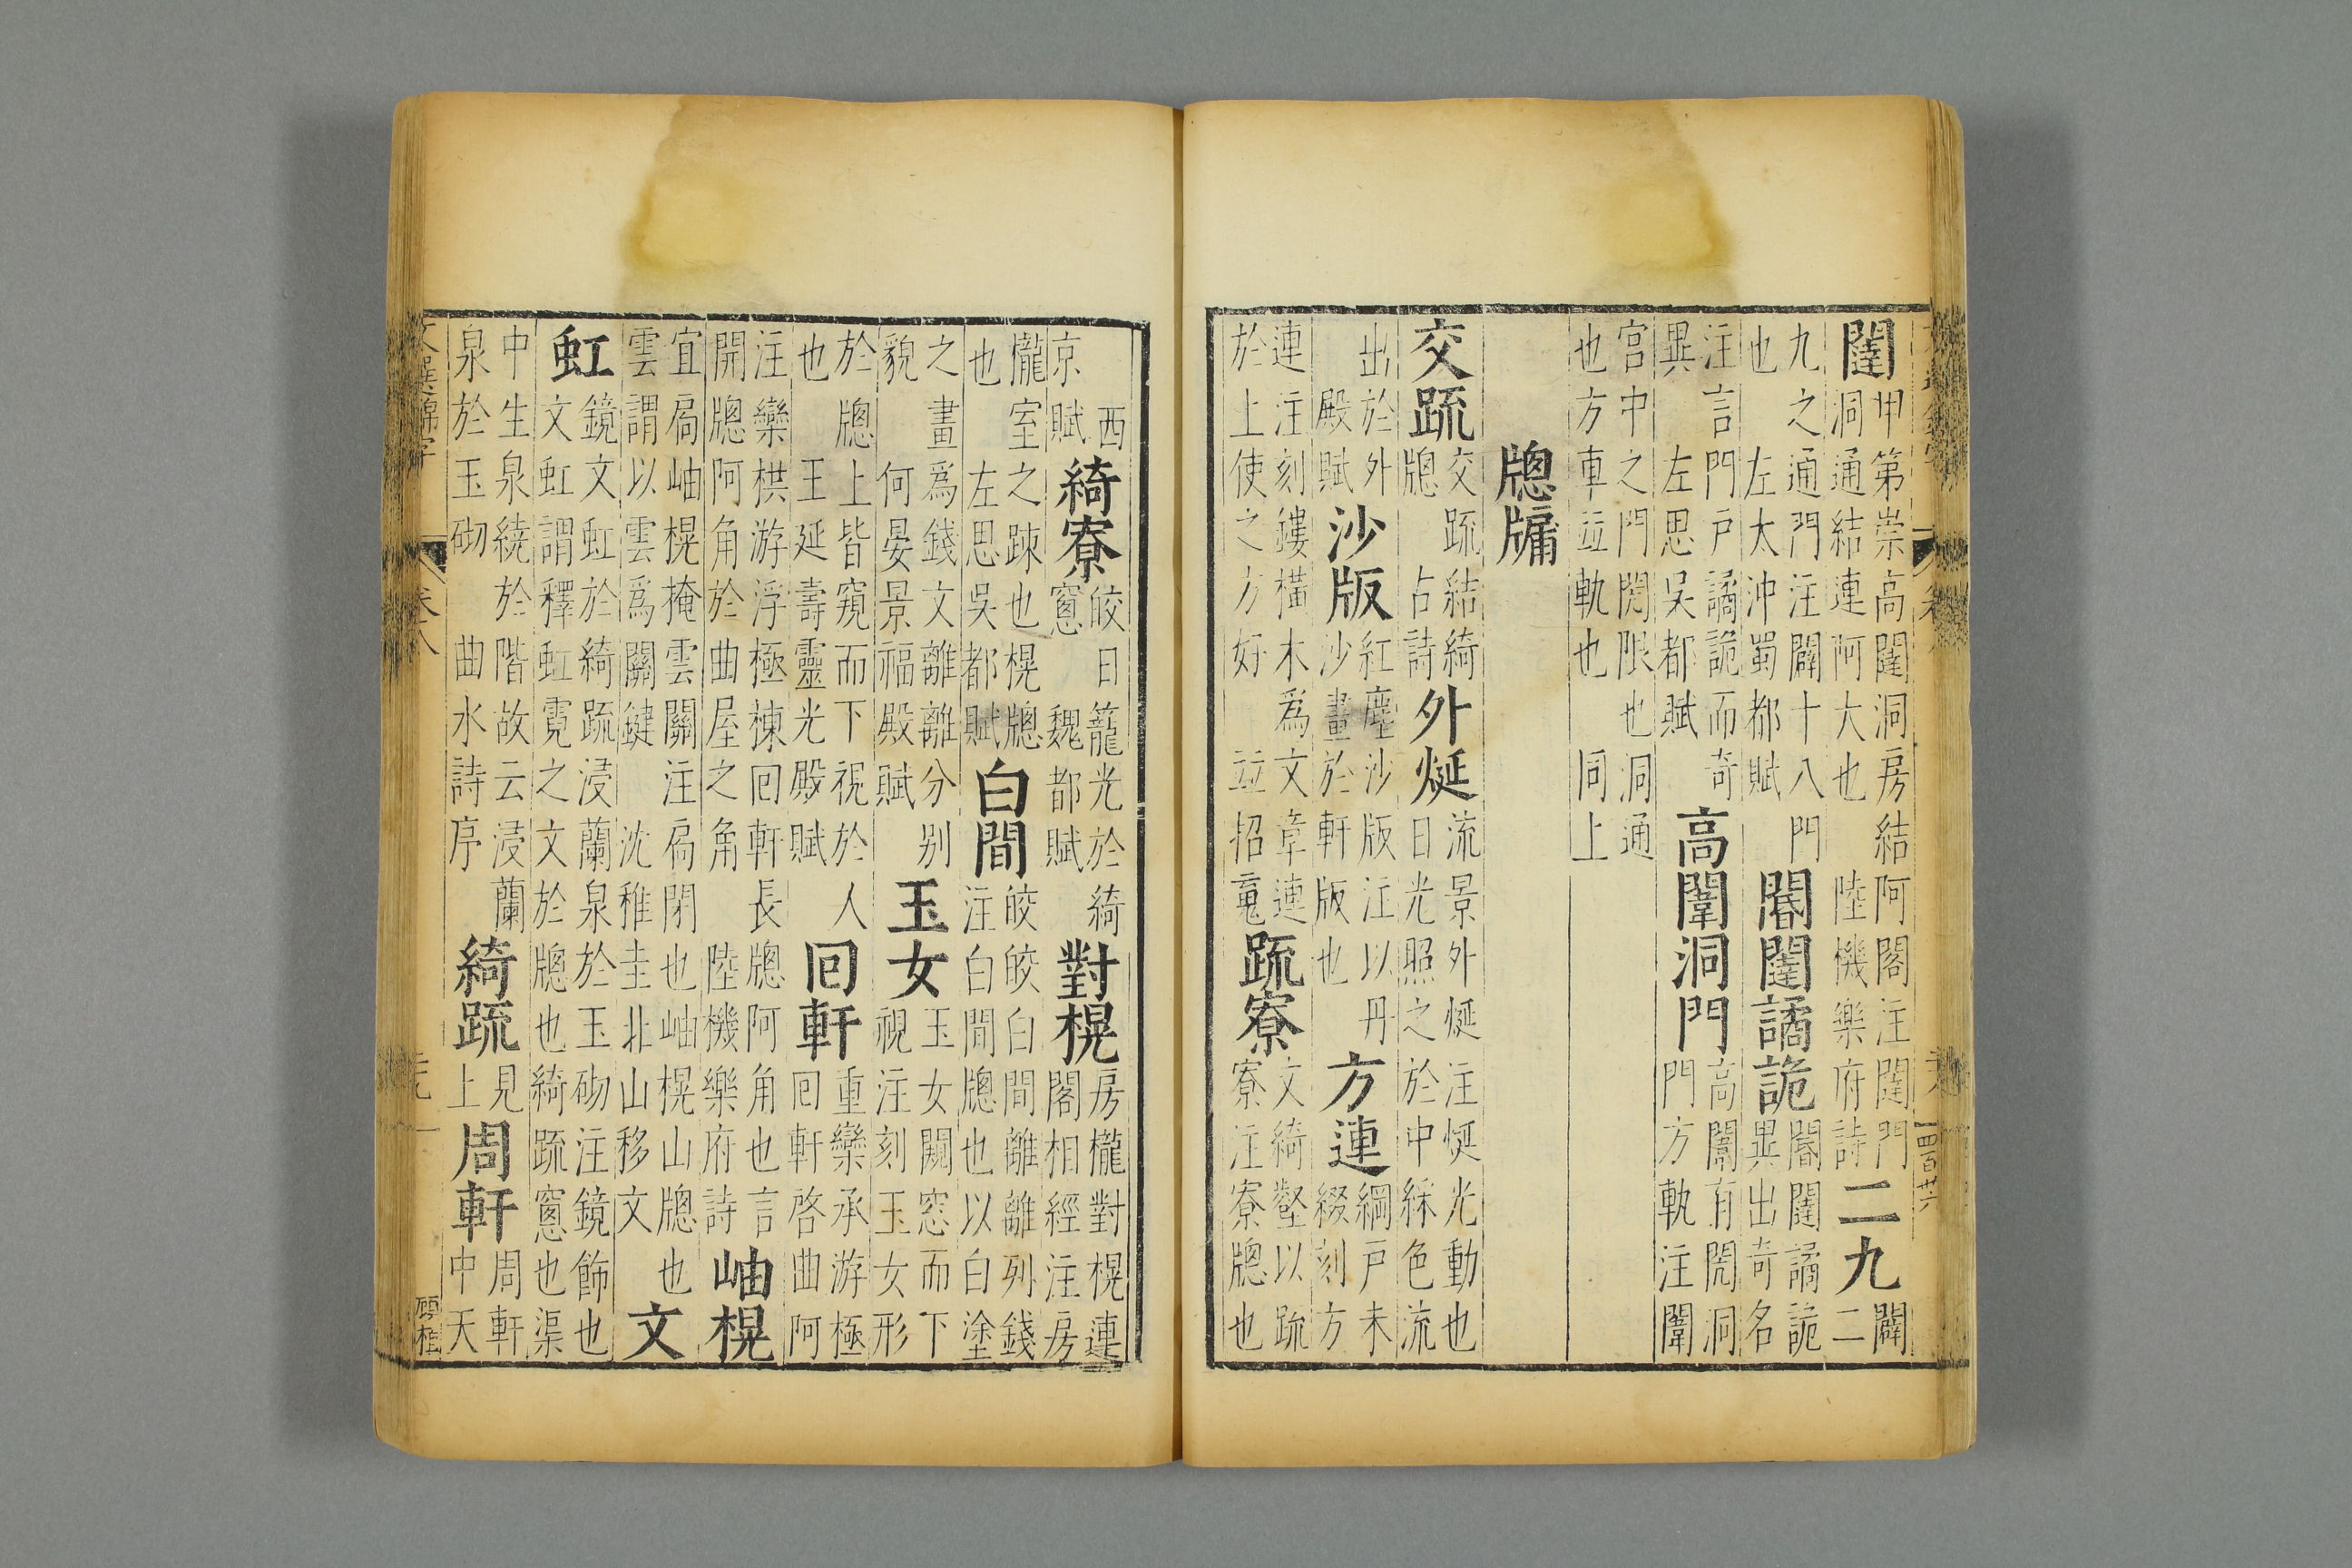 四百廿六
闥 甲第崇高闥洞房結阿閣注闥門 洞通結連阿大也 陸機樂府詩 二九 闢 二
九之通門注闢十八門 也 左太沖蜀都賦 閽闥譎詭 閽闥譎詭 異出奇名
注言門戶譎詭而奇 異 左思吳都賦 高闈洞門 高闈有閌洞 門方軌注闈
宮中之門閌限也洞通 也方車並軌也 同上
牎牗
交疏 交疏結綺 牎 古詩 外烻 流景外烻注烻光動也 日光照之於中綵色流
出於外 殿賦 沙版 紅塵沙版注以丹 沙畫於軒版也 方連 網戶朱 綴刻方
連注刻鏤橫木爲文章連 於上使之方好 並招䰟 疏寮 文綺壑以疏 寮注寮牎也
西 京賦 綺寮 皎日籠光於綺 窻 魏都賦 對榥 房櫳對榥連 閣相經注房
櫳室之踈也榥牎 也 左思吳都賦 白間 皎皎白間離離列錢 注白間牎也以白塗
之畫爲錢文離離分别 貌 何晏景福殿賦 玉女 玉女闚窓而下 視注刻玉女形
於牎上皆窺而下視於人 也 王延壽靈光殿賦 回軒 重欒承游極 回軒啓曲阿
注欒栱游浮極棟回軒長牎阿角也言 開牎阿角於曲屋之角 陸機樂府詩 岫榥
宜扃岫榥掩雲關注扃閉也岫榥山牎也 雲謂以雲爲關鍵 沈稚圭北山移文 文
虹 鏡文虹於綺疏浸蘭泉於玉砌注鏡飾也 文虹謂釋虹霓之文於牎也綺疏窻也渠
中生泉繞於階故云浸蘭 泉於玉砌 曲水詩序 綺疏 見 上 周軒 周軒 中天
文選錦字 卷八